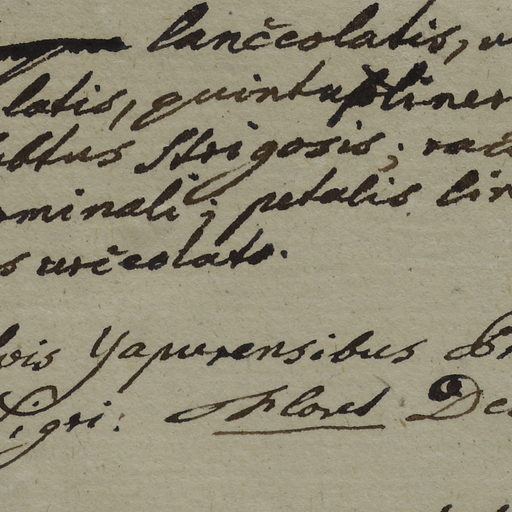 lancĕolatis, u
latis, quintuplinер
ubtus strigosis; rac
minali; petalis lin
s urcĕolato.
Yapurensibus
igri. Floret De